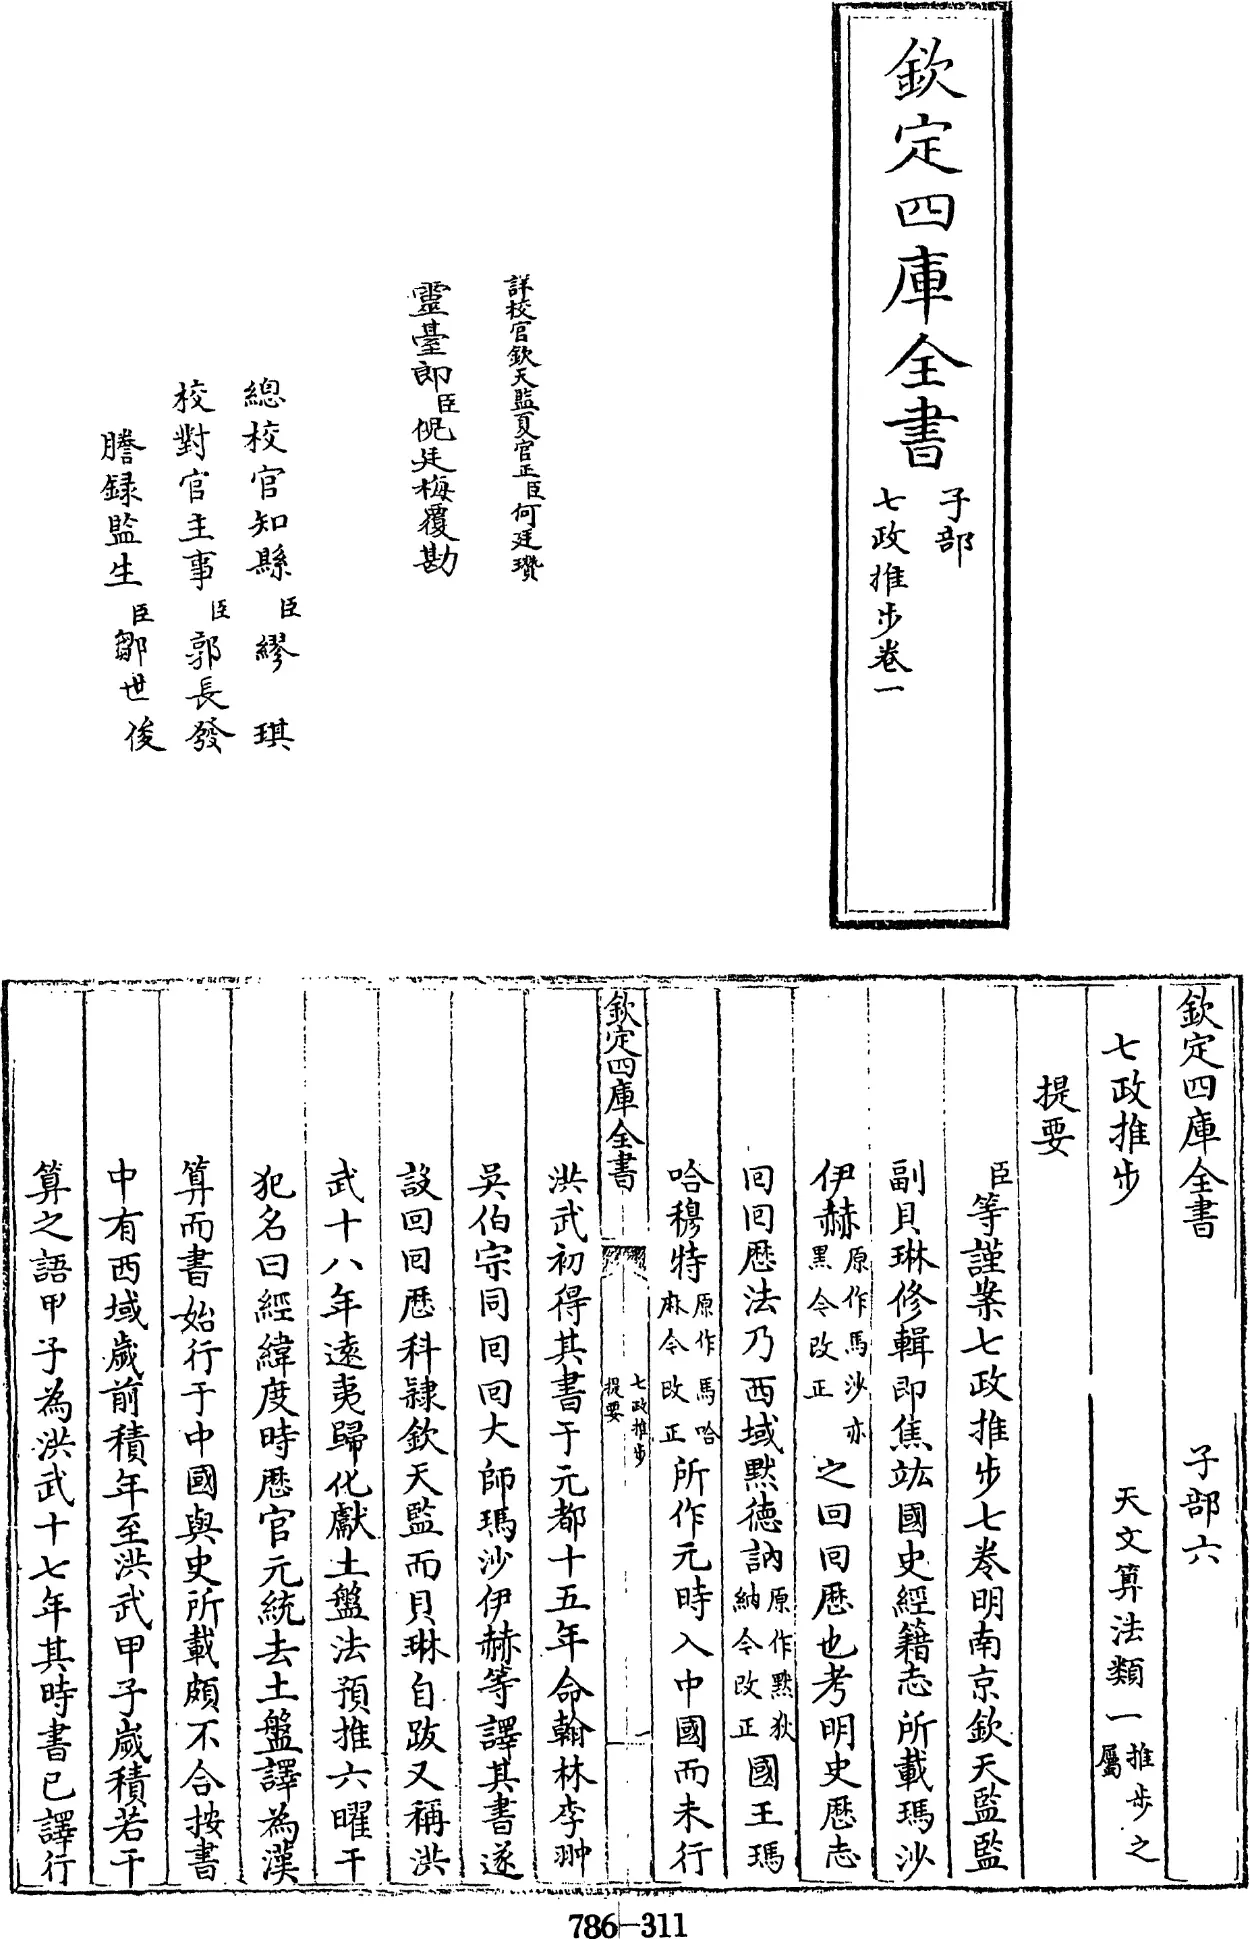 欽定四庫全書
子部
七政推步卷一
詳校官欽天監夏官正臣何廷瓚
靈臺郎臣倪廷梅覆勘
總校官知縣臣繆琪
校對官主事臣郭長發
謄錄監生臣鄒世俊
欽定四庫全書 子部六
七政推步 天文算法類一推步之屬
提要
臣等謹案七政推步七卷明南京欽天監監
副貝琳修輯即焦竑國史經籍志所載瑪沙
伊赫原作馬沙亦黑今改正之回回厯也考明史厯志
回回厯法乃西域黙德訥原作黙狄納今改正國王瑪
哈穆特原作馬哈麻今改正所作元時入中國而未行
欽定四庫全書
七政推步
提要
一
洪武初得其書于元都十五年命翰林李翀
吳伯宗同回回大師瑪沙伊赫等譯其書遂
設回回厯科隸欽天監而貝琳自跋又稱洪
武十八年遠夷歸化獻土盤法預推六曜干
犯名曰經緯度時厯官元統去土盤譯為漢
算而書始行于中國與史所載頗不合按書
中有西域歲前積年至洪武甲子歲積若干
算之語甲子為洪武十七年其時書已譯行
786-311